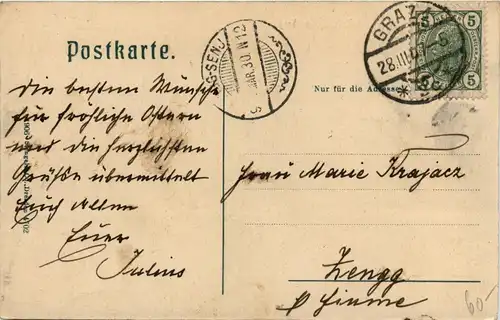 Postkarte.
Nur für die Adresse
Die besten Wünsche
für fröhliche Ostern
und die herzlichsten
Grüße übermittelt
Euch Allen
Euer
Julius
Frau Marie Krajacz
Zengg
p Fiume
GRAZ
28.III.0
5
5
5
5
G-SENJ
60-